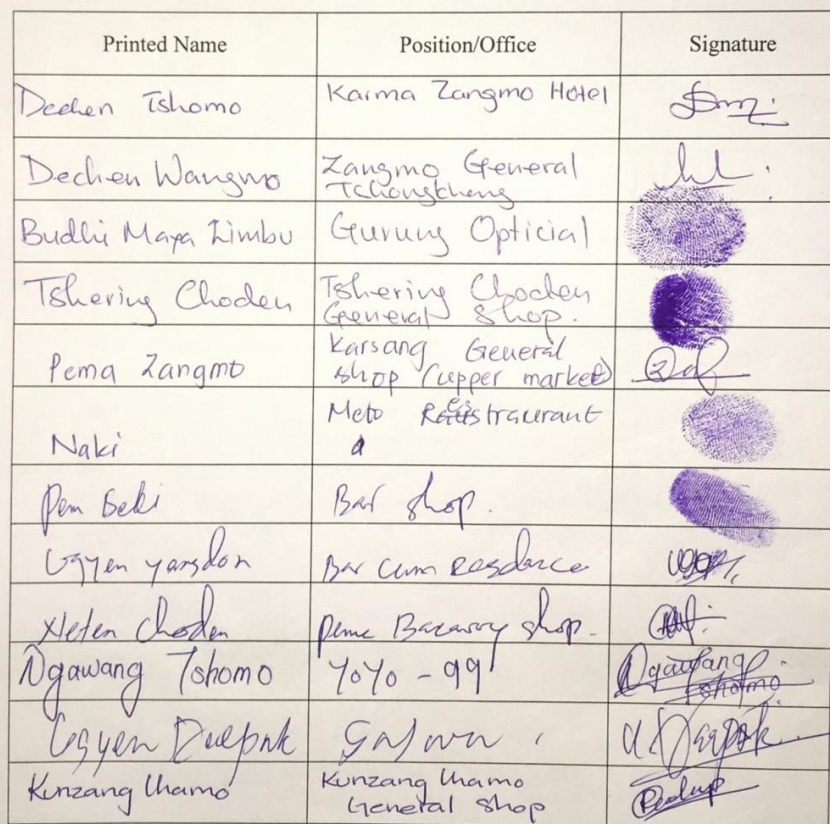 Printed Name Position/Office Signature
Dechen Tshomo Karma Zangmo Hotel
Dechen Wangmo Zangmo General
Tchongkhang
Budhi Maya Limbu Gurung Opticial
Tshering Choden Tshering Choden
General Shop.
Pema Zangmo Karsang General
shop (upper market)
Naki Meto
Pem Beki Bar shop.
Ugyen yangdon Bar cum
Choden shop.
Ngawang Tshomo YoYo - 99 Ngawang
Tshomo
Ugyen Deepak U. Deepak.
Kunzang Lhamo Kunzang Lhamo
General shop